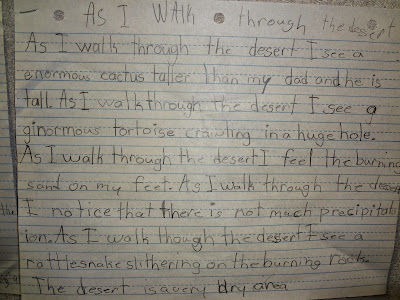 As I WAlk through the desert
As I walk through the desert I see a
enormous cactus taller than my dad and he is
tall. As I walk through the desert I see a
ginormous tortoise crawling in a huge hole.
As I walk through the desert I feel the burning
sand on my feet. As I walk through the desert
I notice that there is not much precipitat
ion. As I walk though the desert I see a
rattlesnake slithering on the burning rock.
The desert is a very dry area